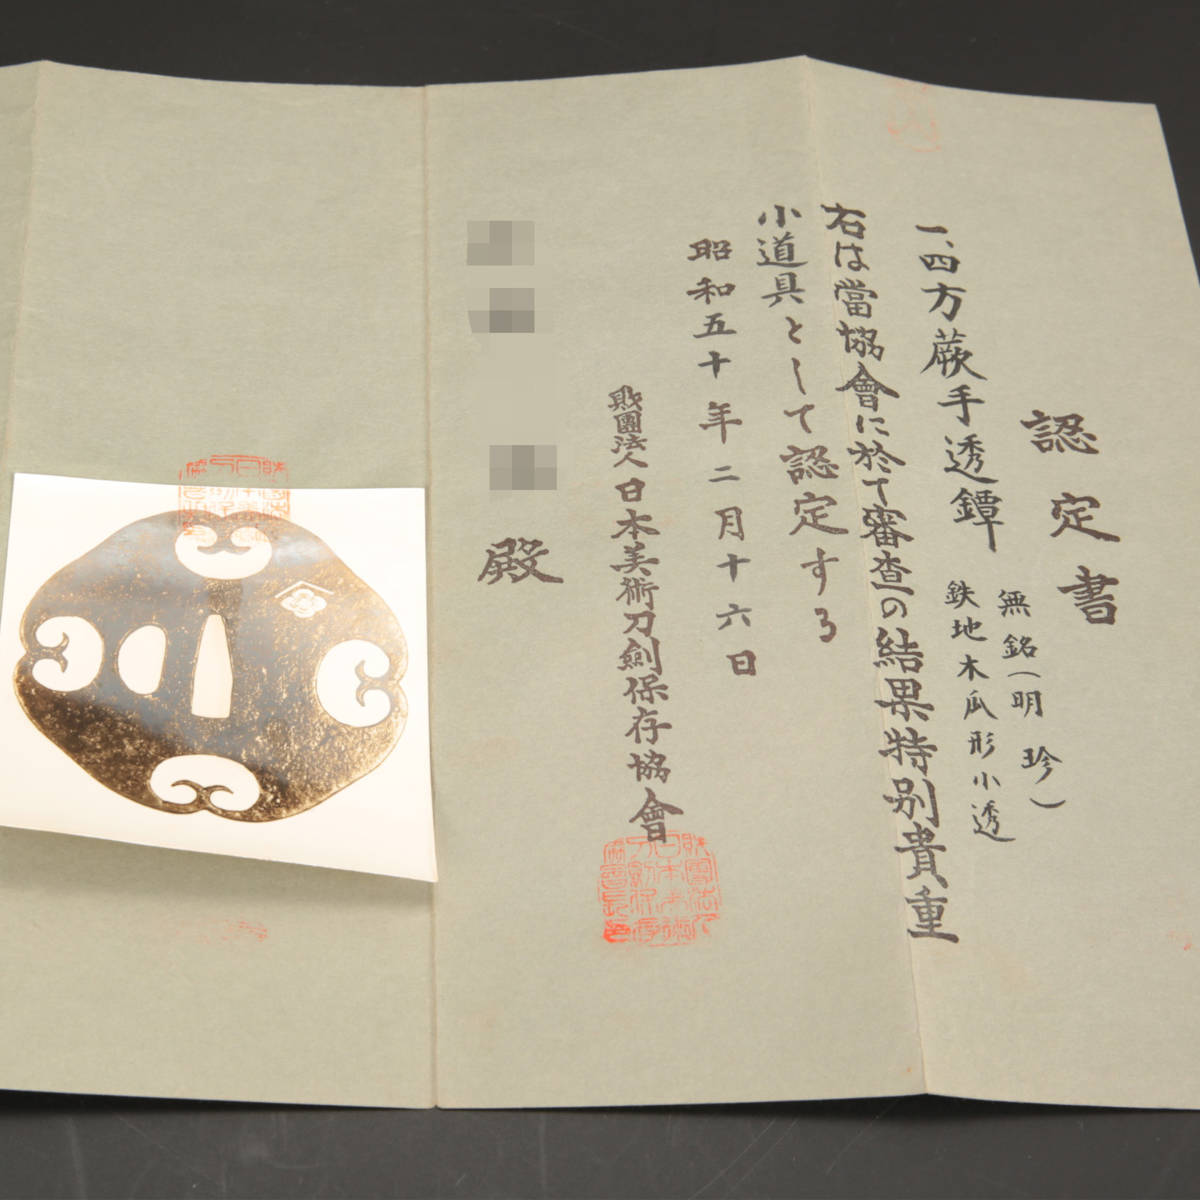 認定書
一、四方蕨手透鐔
無銘（明珍）
鉄地木瓜形小透
右は當協會に於て審査の結果特別貴重
小道具として認定する
昭和五十年二月十六日
財團法人日本美術刀劍保存協會
殿